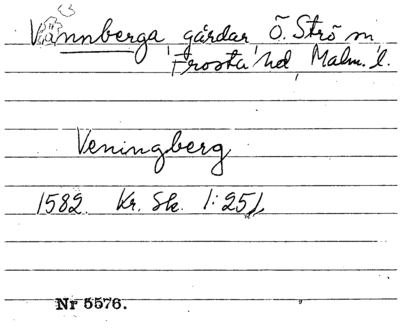 Vännberga gårdar Ö. Strö sn
Frosta hd, Malm. l.
Veningberg
1582. Kr. Sk. 1:251
Nr 5576.